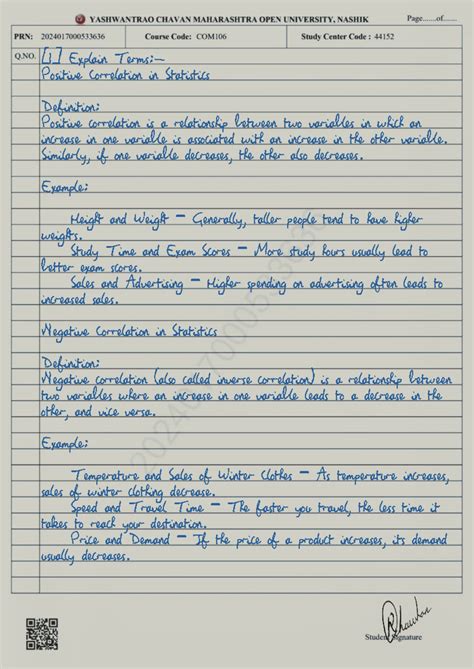 YASHWANTRAO CHAVAN MAHARASHTRA OPEN UNIVERSITY, NASHIK
Page......of......
PRN: 2024017000533636
Course Code: COM106
Study Center Code : 44152
Q.NO.
[1] Explain Terms:-
Positive Correlation in Statistics
Definition:
Positive correlation is a relationship between two variables in which an
increase in one variable is associated with an increase in the other variable.
Similarly, if one variable decreases, the other also decreases.
Example:
Height and Weight – Generally, taller people tend to have higher
weights.
Study Time and Exam Scores – More study hours usually lead to
better exam scores.
Sales and Advertising – Higher spending on advertising often leads to
increased sales.
Negative Correlation in Statistics
Definition:
Negative correlation (also called inverse correlation) is a relationship between
two variables where an increase in one variable leads to a decrease in the
other, and vice versa.
Example:
Temperature and Sales of Winter Clothes – As temperature increases,
sales of winter clothing decrease.
Speed and Travel Time – The faster you travel, the less time it
takes to reach your destination.
Price and Demand – If the price of a product increases, its demand
usually decreases.
2024017000533636
Student Signature